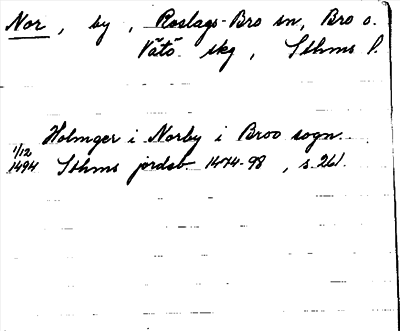 Nor, by, Roslags-Bro sn, Bro o.
Vätö skg, Sthms l.
Holmger i Norby i Broo sogn.
1/12
1494 Sthms jordeb. 1474-98, s. 261.